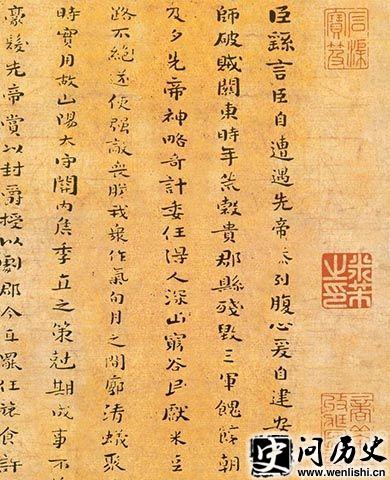 臣繇言臣自遭遇先帝忝列腹心爰自建安
師破賊關東時年荒穀貴郡縣殘毀三軍餽饟朝
及夕先帝神略奇計委任得人深山窮谷民獻米豆
路不絕遂使強敵喪膽我眾作氣旬月之間廓清蟻聚
時實用故山陽太守關內侯季直之策剋期成事不
豪髮先帝賞以封爵授以劇郡今直罷任旅食許
米芾之印
问历史
www.wenlishi.cn